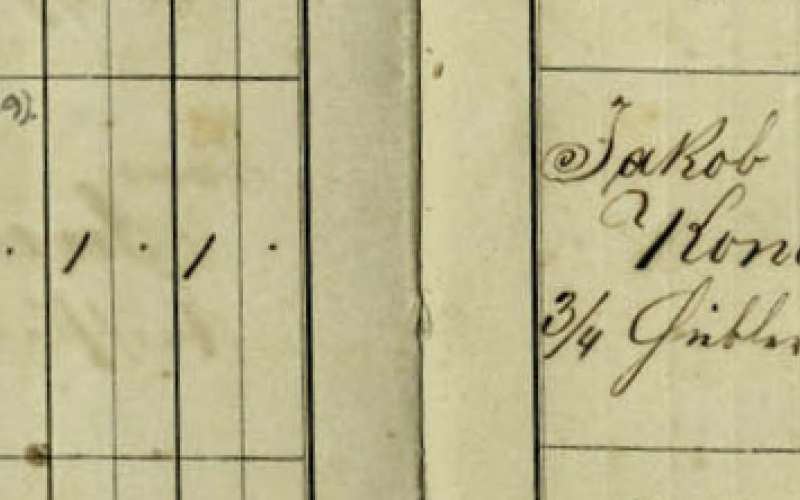 9).
. / . / .
Jakob
Kon
3/4